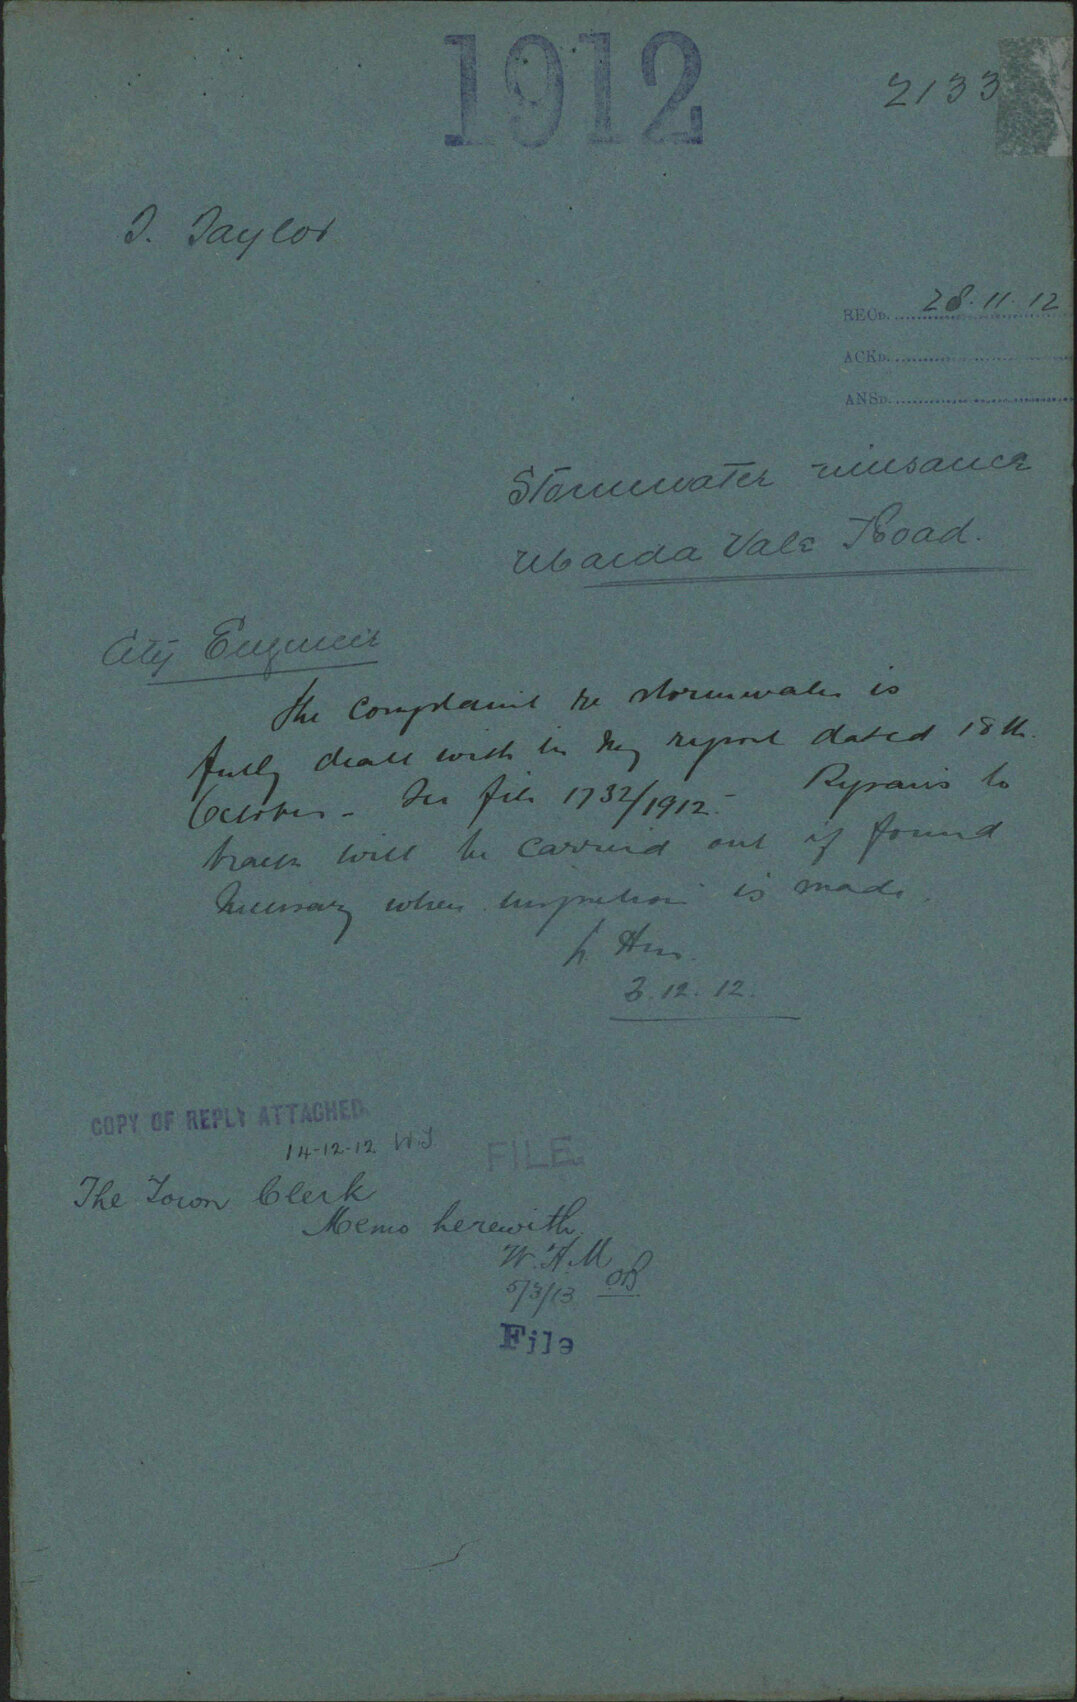 1912
2133
T. Taylor
RECD. 28.11.12
ACKD.
ANSD.
Stormwater nuisance
Maida Vale Road.
City Engineer
The complaint re stormwater is
fully dealt with in my report dated 18th
October - See file 1732/1912 - Repairs to
track will be carried out if found
necessary when inspection is made.
3.12.12.
COPY OF REPLY ATTACHED
14-12-12 W.J
FILE
The Town Clerk
Memo herewith
W.H.M
5/3/13
File